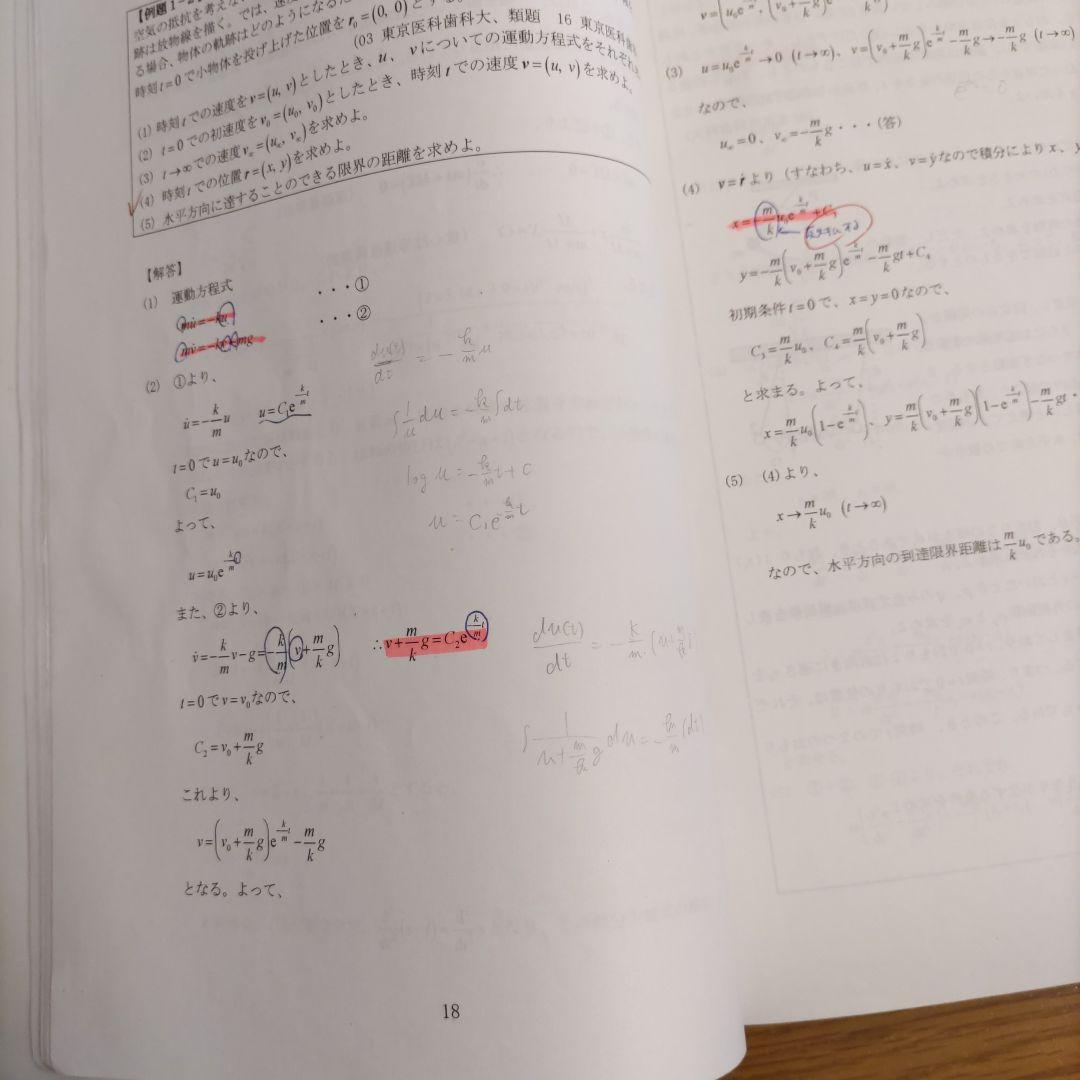 【例題1-2
空気の抵抗を考えな
跡は放物線を描く。では、速度
る場合、物体の軌跡はどのようになるだ
時刻t=0で小物体を投げ上げた位置をr₀=(0, 0)とする。
(03 東京医科歯科大、類題 16 東京医科歯科
(1) 時刻tでの速度をv=(u, v)としたとき、u、vについての運動方程式をそれぞれ
(2) t=0での初速度をv₀=(u₀, v₀)としたとき、時刻tでの速度v=(u, v)を求めよ。
(3) t→∞での速度v∞=(u∞, v∞)を求めよ。
(4) 時刻tでの位置r=(x, y)を求めよ。
(5) 水平方向に達することのできる限界の距離を求めよ。
【解答】
(1) 運動方程式
mu̇=-ku ・・・①
mv̇=-kv-mg ・・・②
(2) ①より、
u̇=-k/m u u=C₁e^(-k/m t)
t=0でu=u₀なので、
C₁=u₀
よって、
u=u₀e^(-k/m t)
また、②より、
v̇=-k/m v-g=-k/m(v+m/k g) ∴v+m/k g=C₂e^(-k/m t)
t=0でv=v₀なので、
C₂=v₀+m/k g
これより、
v=(v₀+m/k g)e^(-k/m t)-m/k g
となる。よって、
du(t)/dt = -k/m u
∫1/u du = -k/m ∫dt
log u = -k/m t + C
u = C₁e^(-k/m t)
du(t)/dt = -k/m (u+m/k g)
∫1/(u+m/k g) du = -k/m ∫dt
18
v=(u₀e^(-k/m t), (v₀+m/k g)e^(-k/m t)
(3) u=u₀e^(-k/m t)→0 (t→∞)、v=(v₀+m/k g)e^(-k/m t)-m/k g→-m/k g (t→∞)
なので、
u∞=0、v∞=-m/k g・・・(答)
(4) v=ṙより (すなわち、u=ẋ、v=ẏなので積分によりx、y
x=-m/k u₀e^(-k/m t)+C₃
y=-m/k(v₀+m/k g)e^(-k/m t)-m/k gt+C₄
初期条件t=0で、x=y=0なので、
C₃=m/k u₀、C₄=m/k(v₀+m/k g)
と求まる。よって、
x=m/k u₀(1-e^(-k/m t))、y=m/k(v₀+m/k g)(1-e^(-k/m t))-m/k gt・
(5) (4)より、
x→m/k u₀ (t→∞)
なので、水平方向の到達限界距離はm/k u₀である。